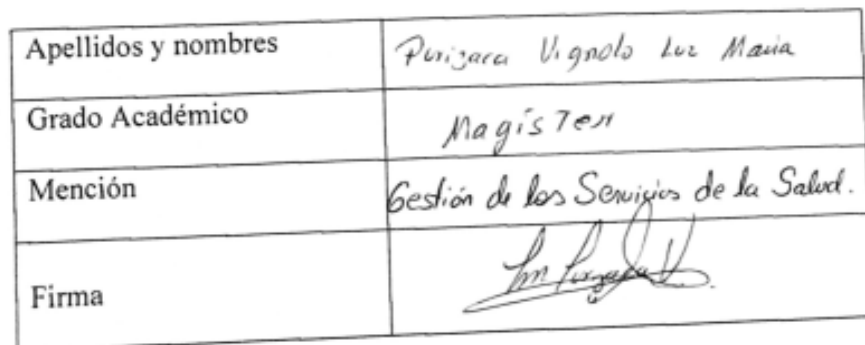 Apellidos y nombres Purizaca Vignolo Luz Maria
Grado Académico Magister
Mención Gestión de los Servicios de la Salud.
Firma